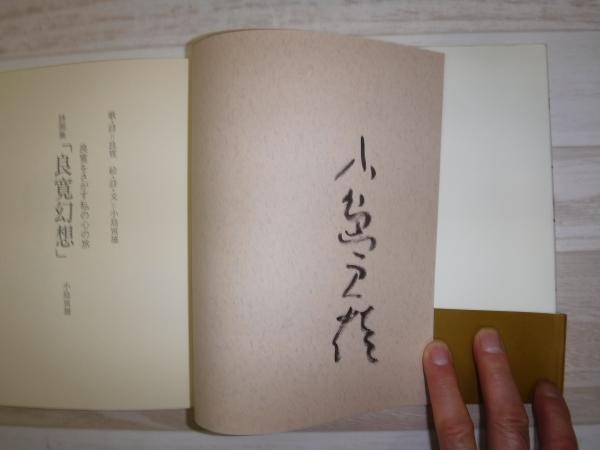 小島寅雄
歌・詩=良寛 絵・詩・文=小島寅雄
良寛をさがす私の心の旅
詩画集「良寛幻想」
小島寅雄